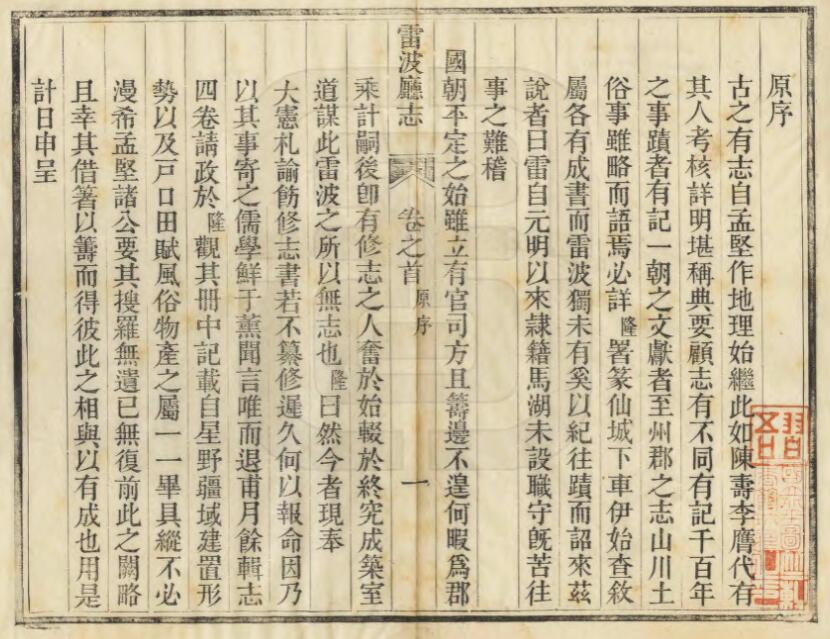 原序
古之有志自孟堅作地理始繼此如陳壽李膺代有
其人考核詳明堪稱典要顧志有不同有記千百年
之事蹟者有記一朝之文獻者至州郡之志山川土
俗事雖略而語焉必詳隆署篆仙城下車伊始查敘
屬各有成書而雷波獨未有奚以紀往蹟而詔來茲
說者曰雷自元明以來隷籍馬湖未設職守旣苦往
事之難稽
國朝不定之始雖立有官司方且籌邊不遑何暇爲郡
雷波廳志 卷之首 原序 一
乘計嗣後卽有修志之人奮於始輟於終究成築室
道謀此雷波之所以無志也隆曰然今者現奉
大憲札諭飭修志書若不纂修遲久何以報命因乃
以其事寄之儒學鮮于薰聞言唯而退甫月餘輯志
四卷請政於隆觀其冊中記載自星野疆域建置形
勢以及戸口田賦風俗物產之屬一一畢具縱不必
漫希孟堅諸公要其搜羅無遺已無復前此之闕略
且幸其借箸以籌而得彼此之相與以有成也用是
計日申呈